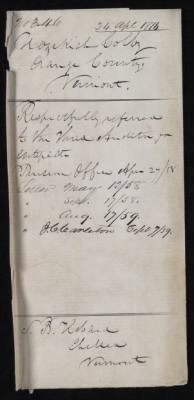 24 Apl. 1776
Hezekiah Colby
Orange County,
Vermont.
Respectfully referred
to the Third Auditor for
report
Pension Office Apr 27/58
Letter May 13/58
" Sept. 17/58.
" Aug. 17/59.
" Sept 7/59.
S. B. Hebard
Chelsea
Vermont